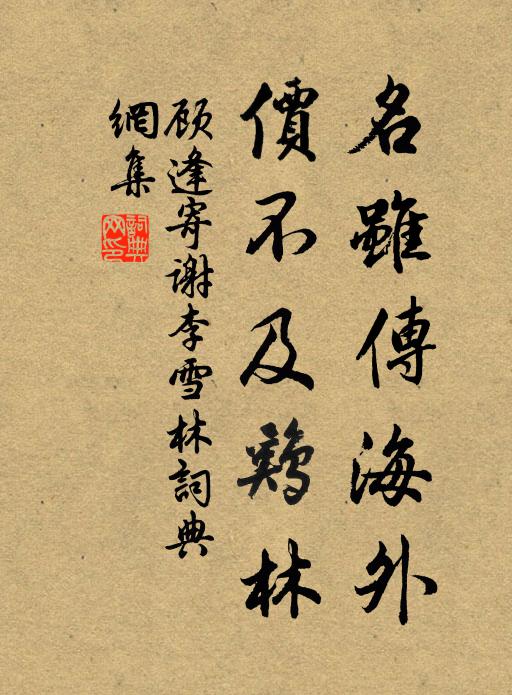 名雖傳海外
價不及鷄林
顧逢寄謝李雪林詞典
網集
詞典網印